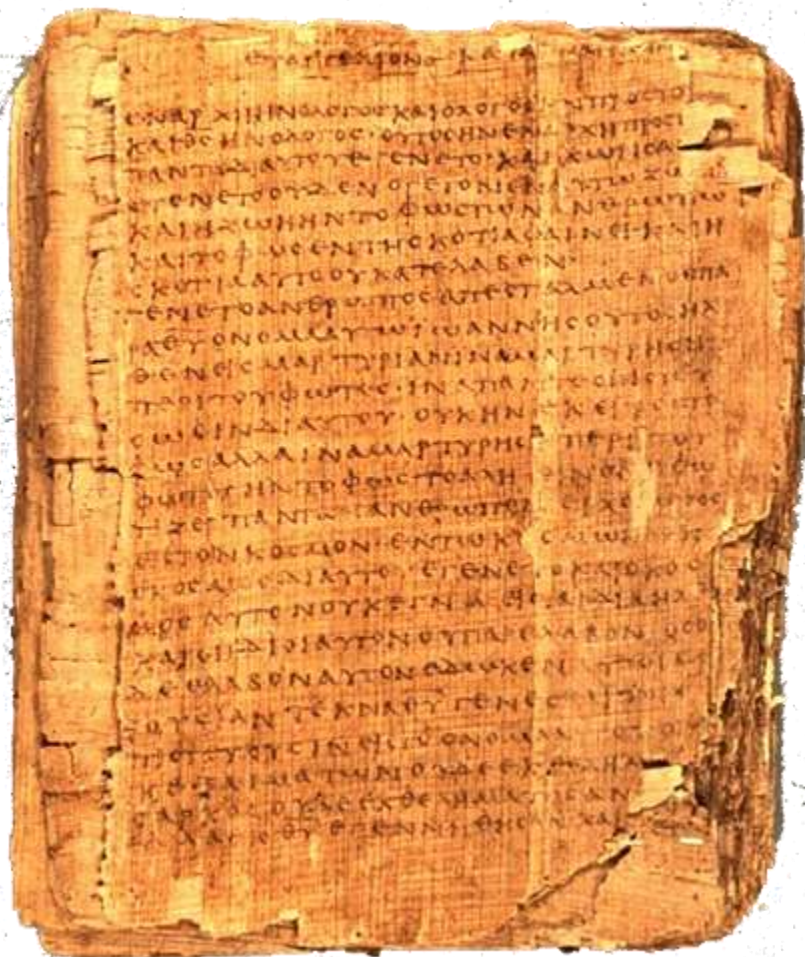 ΕΥΑΓΓΕΛΙΟΝ ΚΑΤΑ
ΕΝΑΡΧΗΗΝΟΛΟΓΟΣΚΑΙΟΛΟΓΟΣΗΝΠΡΟΣΤΟ
ΚΑΙΘΣΗΝΟΛΟΓΟΣ·ΟΥΤΟΣΗΝΕΝΑΡΧΗΠΡΟΣ
ΠΑΝΤΑΔΙΑΥΤΟΥΕΓΕΝΕΤΟ·ΚΑΙΧΩΡΙΣΑ
ΕΓΕΝΕΤΟΟΥΔΕΝΟΓΕΓΟΝΕΝΕΝΑΥΤΩΖΩ
ΚΑΙΗΖΩΗΗΝΤΟΦΩΣΤΩΝΑΝΘΡΩΠΩ
ΚΑΙΤΟΦΩΣΕΝΤΗΣΚΟΤΙΑΦΑΙΝΕΙ·ΚΑΙΗ
ΣΚΟΤΙΑΑΥΤΟΟΥΚΑΤΕΛΑΒΕΝ·
ΕΓΕΝΕΤΟΑΝΘΡΩΠΟΣΑΠΕΣΤΑΛΜΕΝΟΣΠΑ
ΡΑΘΥΟΝΟΜΑΑΥΤΩΙΩΑΝΝΗΣΟΥΤΟΣΗΛ
ΘΕΝΕΙΣΜΑΡΤΥΡΙΑΝΙΝΑΜΑΡΤΥΡΗΣΗ
ΠΕΡΙΤΟΥΦΩΤΟΣ·ΙΝΑΠΑΝΤΕΣΠΙΣΤΕΥ
ΣΩΣΙΝΔΙΑΥΤΟΥ·ΟΥΚΗΝΕΚΕΙΝΟΣΤΟ
ΦΩΣΑΛΛΑΙΝΑΜΑΡΤΥΡΗΣΗΠΕΡΙΤΟΥ
ΦΩΤΟΣΗΝΤΟΦΩΣΤΟΑΛΗΘΙΝΟΝΟΦΩ
ΤΙΖΕΙΠΑΝΤΑΑΝΘΡΩΠΟΝΕΡΧΟΜΕΝΟΝ
ΕΙΣΤΟΝΚΟΣΜΟΝ·ΕΝΤΩΚΟΣΜΩΗΝΚΑΙ
ΟΚΟΣΜΟΣΔΙΑΥΤΟΥΕΓΕΝΕΤΟΚΑΙΟΚΟΣ
ΜΟΣΑΥΤΟΝΟΥΚΕΓΝΩΕΙΣΤΑΙΔΙΑΗΛ
ΚΑΙΟΙΙΔΙΟΙΑΥΤΟΝΟΥΠΑΡΕΛΑΒΟΝΟΣΟΙ
ΔΕΕΛΑΒΟΝΑΥΤΟΝΕΔΩΚΕΝΑΥΤΟΙΣΕΞ
ΟΥΣΙΑΝΤΕΚΝΑΘΥΓΕΝΕΣΘΑΙΤΟΙΣ
ΠΙΣΤΕΥΟΥΣΙΝΕΙΣΤΟΟΝΟΜΑ
ΕΞΑΙΜΑΤΩΝΟΥΔΕΕΚΘΕΛΗΜΑ
ΣΑΡΚΟΣΟΥΔΕΕΚΘΕΛΗΜΑΤΟΣΑΝ
ΑΛΛΑΕΚΘΥΕΓΕΝΝΗΘΗΣΑΝΚΑΙ